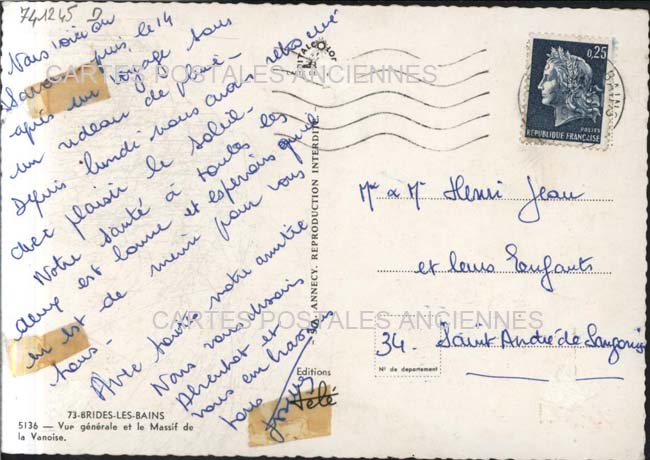 741245 D
Nous voici en
Savoie depuis le 14
après un voyage sous
un rideau de pluie -
Depuis lundi nous avons retrouvé
avec plaisir le soleil -
Notre santé à toutes les
deux est bonne et espérons qu'il
en est de même pour vous
tous -
Avec toute notre amitié
Nous vous désirons
et
vous embrassons
tous
CARTES POSTALES ANCIENNES
CARTES POSTALES ANCIENNES
73-BRIDES-LES-BAINS
5136 — Vue générale et le Massif de
la Vanoise.
ANNECY. REPRODUCTION INTERDITE.
Editions
Télé
0,25
POSTES
RÉPUBLIQUE FRANÇAISE
BAINS
Mme & Mr Henri Jean
et leurs Enfants
34. Saint André de Sangonis
N° de département